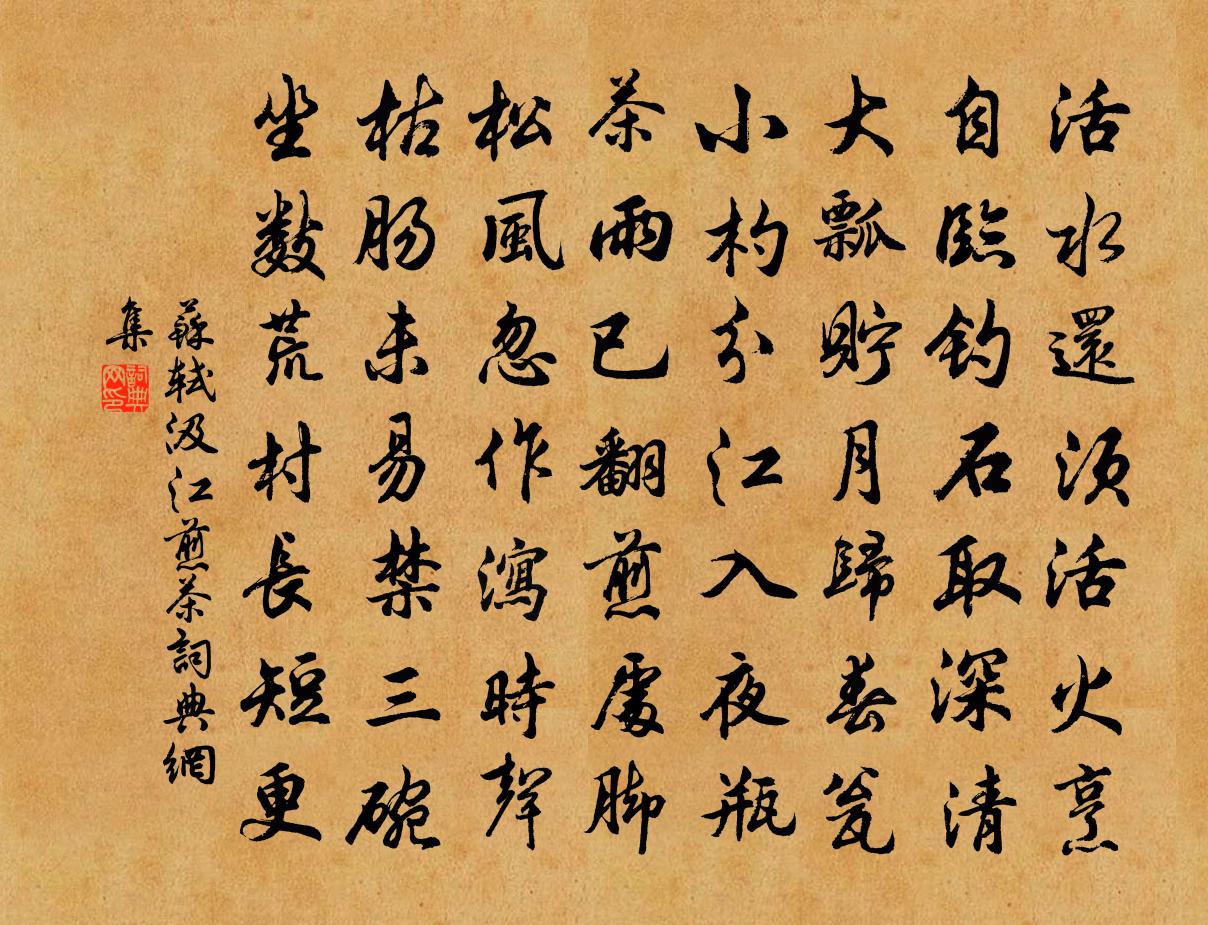 活水還須活火烹
自臨釣石取深清
大瓢貯月歸春瓮
小杓分江入夜瓶
茶雨已翻煎處脚
松風忽作瀉時聲
枯腸未易禁三碗
坐數荒村長短更
蘇軾汲江煎茶詞典網
集
詞典
网印